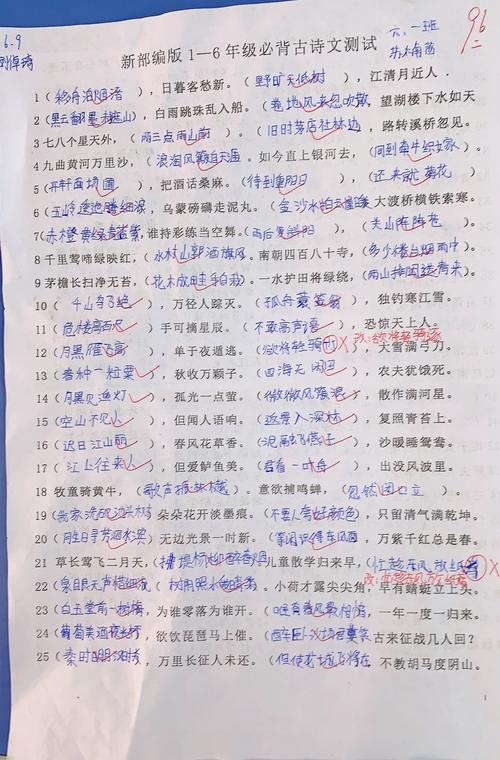 6.9
96
六、一班
新部编版1—6年级必背古诗文测试
1（移舟泊烟渚），日暮客愁新。（野旷天低树），江清月近人．
2（黑云翻墨未遮山），白雨跳珠乱入船。（卷地风来忽吹散），望湖楼下水如天
3 七八个星天外，（两三点雨山前）。（旧时茅店社林边），路转溪桥忽见。
4 九曲黄河万里沙，（浪淘风簸自天涯）。如今直上银河去，（同到牵牛织女家）。
5（开轩面场圃），把酒话桑麻。（待到重阳日），（还来就菊花）
6（五岭逶迤腾细浪），乌蒙磅礴走泥丸。（金沙水拍云崖暖）大渡桥横铁索寒。
7（赤橙黄绿青蓝紫），谁持彩练当空舞。（雨后复斜阳），（关山阵阵苍）。
8 千里莺啼绿映红，（水村山郭酒旗风）。南朝四百八十寺，（多少楼台烟雨中）。
9 茅檐长扫净无苔，（花木成畦手自栽）。一水护田将绿绕，（两山排闼送青来）。
10（千山鸟飞绝），万径人踪灭。（孤舟蓑笠翁），独钓寒江雪。
11（危楼高百尺），手可摘星辰。（不敢高声语），恐惊天上人。
12（月黑雁飞高），单于夜遁逃。（欲将轻骑），大雪满弓刀。
改：欲将轻骑逐
13（春种一粒粟），秋收万颗子。（四海无闲田），农夫犹饿死。
14（月黑见渔灯），孤光一点萤。（微微风簇浪），散作满河星。
15（空山不见人），但闻人语响。（返景入深林），复照青苔上。
16（迟日江山丽），春风花草香。（泥融飞燕子），沙暖睡鸳鸯。
17（江上往来人），但爱鲈鱼美。（君看一叶舟），出没风波里。
18 牧童骑黄牛，（歌声振林樾）。意欲捕鸣蝉，（忽然闭口立）。
19（我家洗砚池头树）朵朵花开淡墨痕。（不要人夸好颜色），只留清气满乾坤。
20（胜日寻芳泗水滨）无边光景一时新。（等闲识得东风面），万紫千红总是春。
21 草长莺飞二月天，（拂堤杨柳醉春烟）儿童散学归来早，（忙趁东风放纸
改：忙趁东风放纸鸢
22（泉眼无声惜细流）（树阴照水爱晴柔）。小荷才露尖尖角，早有蜻蜓立上头。
23（白玉堂前一树梅），为谁零落为谁开。（唯有春风最相惜），一年一度一归来。
24（葡萄美酒夜光杯），欲饮琵琶马上催。（醉卧沙场君莫笑）古来征战几人回？
25（秦时明月汉时关），万里长征人未还。（但使龙城飞将在），不教胡马度阴山。
1